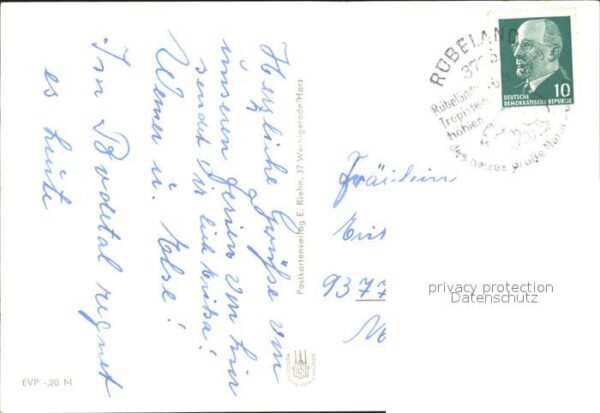 Herzliche Grüße von
unseren Ferien von hier
sendet Dir lieb
Werner u. Else!
"Im Bodetal regnet
es heute
EVP -,20 M
Postkartenverlag E. Riehn, 37 Wernigerode/Harz
RÜBELAND
37
Rübeländer
Tropfstein-
höhlen
DEUTSCHE
DEMOKRATISCHE REPUBLIK
10
Fräulein
9377
privacy protection
Datenschutz